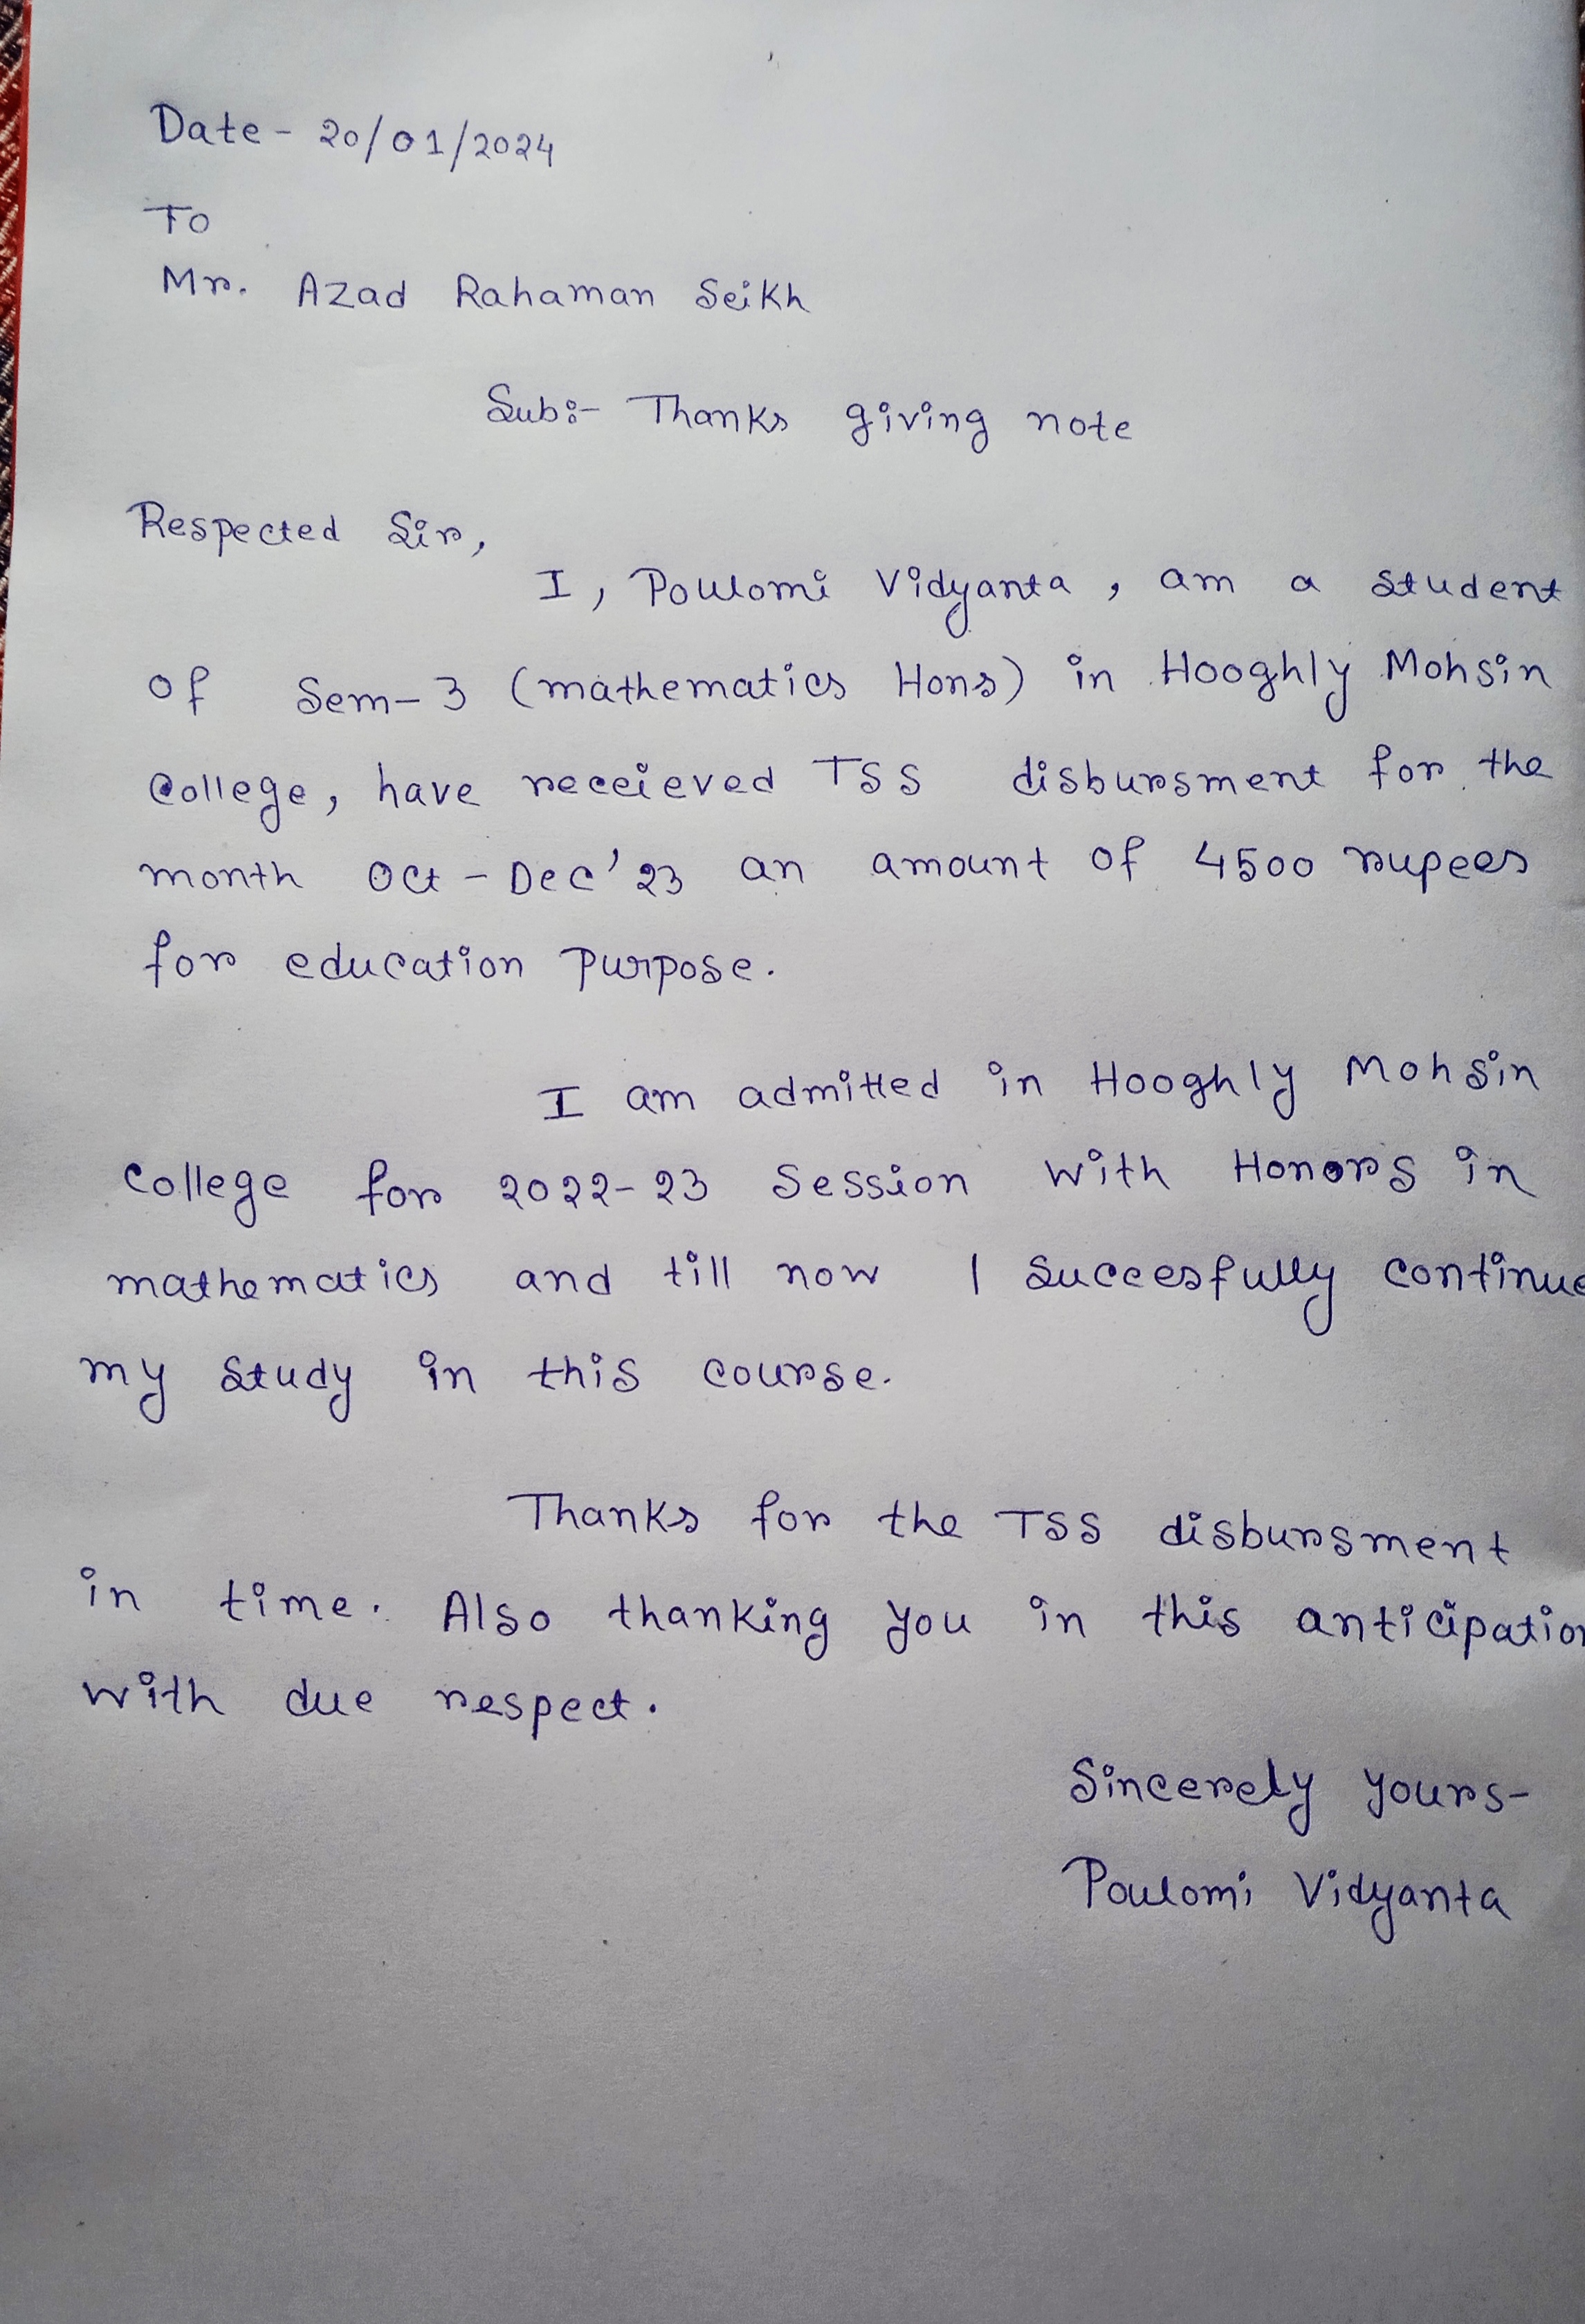 Date - 20/01/2024
To
Mr. Azad Rahaman Seikh
Sub:- Thanks giving note
Respected Sir,
I, Poulomi Vidyanta, am a student
of Sem-3 (mathematics Hons) in Hooghly Mohsin
College, have receieved TSS disbursment for the
month Oct - Dec'23 an amount of 4500 rupees
for education purpose.
I am admitted in Hooghly Mohsin
College for 2022-23 Session with Honors in
mathematics and till now I succesfully continue
my study in this course.
Thanks for the TSS disbursment
in time. Also thanking you in this anticipation
with due respect.
Sincerely yours-
Poulomi Vidyanta